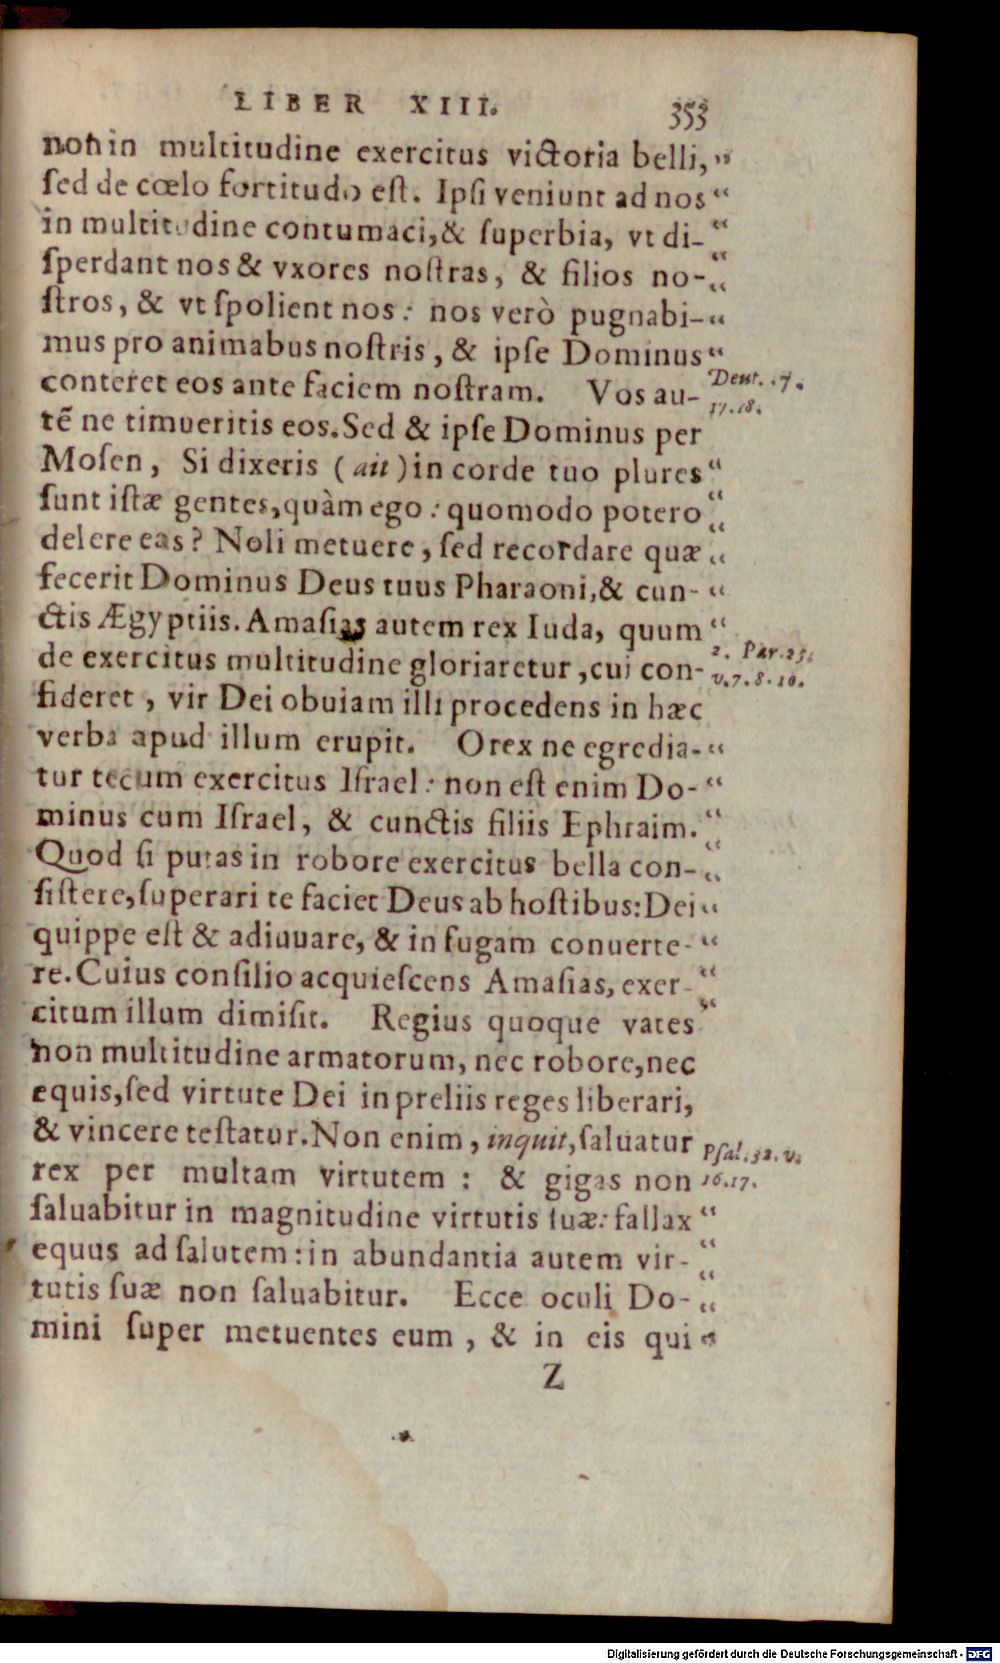 LIBER XIII. 353
non in multitudine exercitus victoria belli, „
sed de cœlo fortitudo est. Ipsi veniunt ad nos “
in multitudine contumaci, & superbia, vt di- “
sperdant nos & vxores nostras, & filios no- “
stros, & vt spolient nos: nos verò pugnabi- “
mus pro animabus nostris, & ipse Dominus “
conteret eos ante faciem nostram. Vos au- Deut. 7.
tē ne timueritis eos. Sed & ipse Dominus per 17.18.
Mosen, Si dixeris (ait) in corde tuo plures “
sunt istæ gentes, quàm ego: quomodo potero “
delere eas? Noli metuere, sed recordare quæ “
fecerit Dominus Deus tuus Pharaoni, & cun- “
ctis Ægyptiis. Amasias autem rex Iuda, quum “
de exercitus multitudine gloriaretur, cui con- 2. Par. 25.
fideret, vir Dei obuiam illi procedens in hæc v. 7. 8. 10.
verba apud illum erupit. O rex ne egredia- “
tur tecum exercitus Israel: non est enim Do- “
minus cum Israel, & cunctis filiis Ephraim. “
Quod si putas in robore exercitus bella con- “
sistere, superari te faciet Deus ab hostibus: Dei “
quippe est & adiuuare, & in fugam conuerte- “
re. Cuius consilio acquiescens Amasias, exer- “
citum illum dimisit. Regius quoque vates ”
non multitudine armatorum, nec robore, nec
equis, sed virtute Dei in preliis reges liberari,
& vincere testatur. Non enim, inquit, saluatur Psal. 32. v.
rex per multam virtutem: & gigas non 16.17.
saluabitur in magnitudine virtutis suæ: fallax “
equus ad salutem: in abundantia autem vir- “
tutis suæ non saluabitur. Ecce oculi Do- “
mini super metuentes eum, & in eis qui “
Z
Digitalisierung gefördert durch die Deutsche Forschungsgemeinschaft - DFG